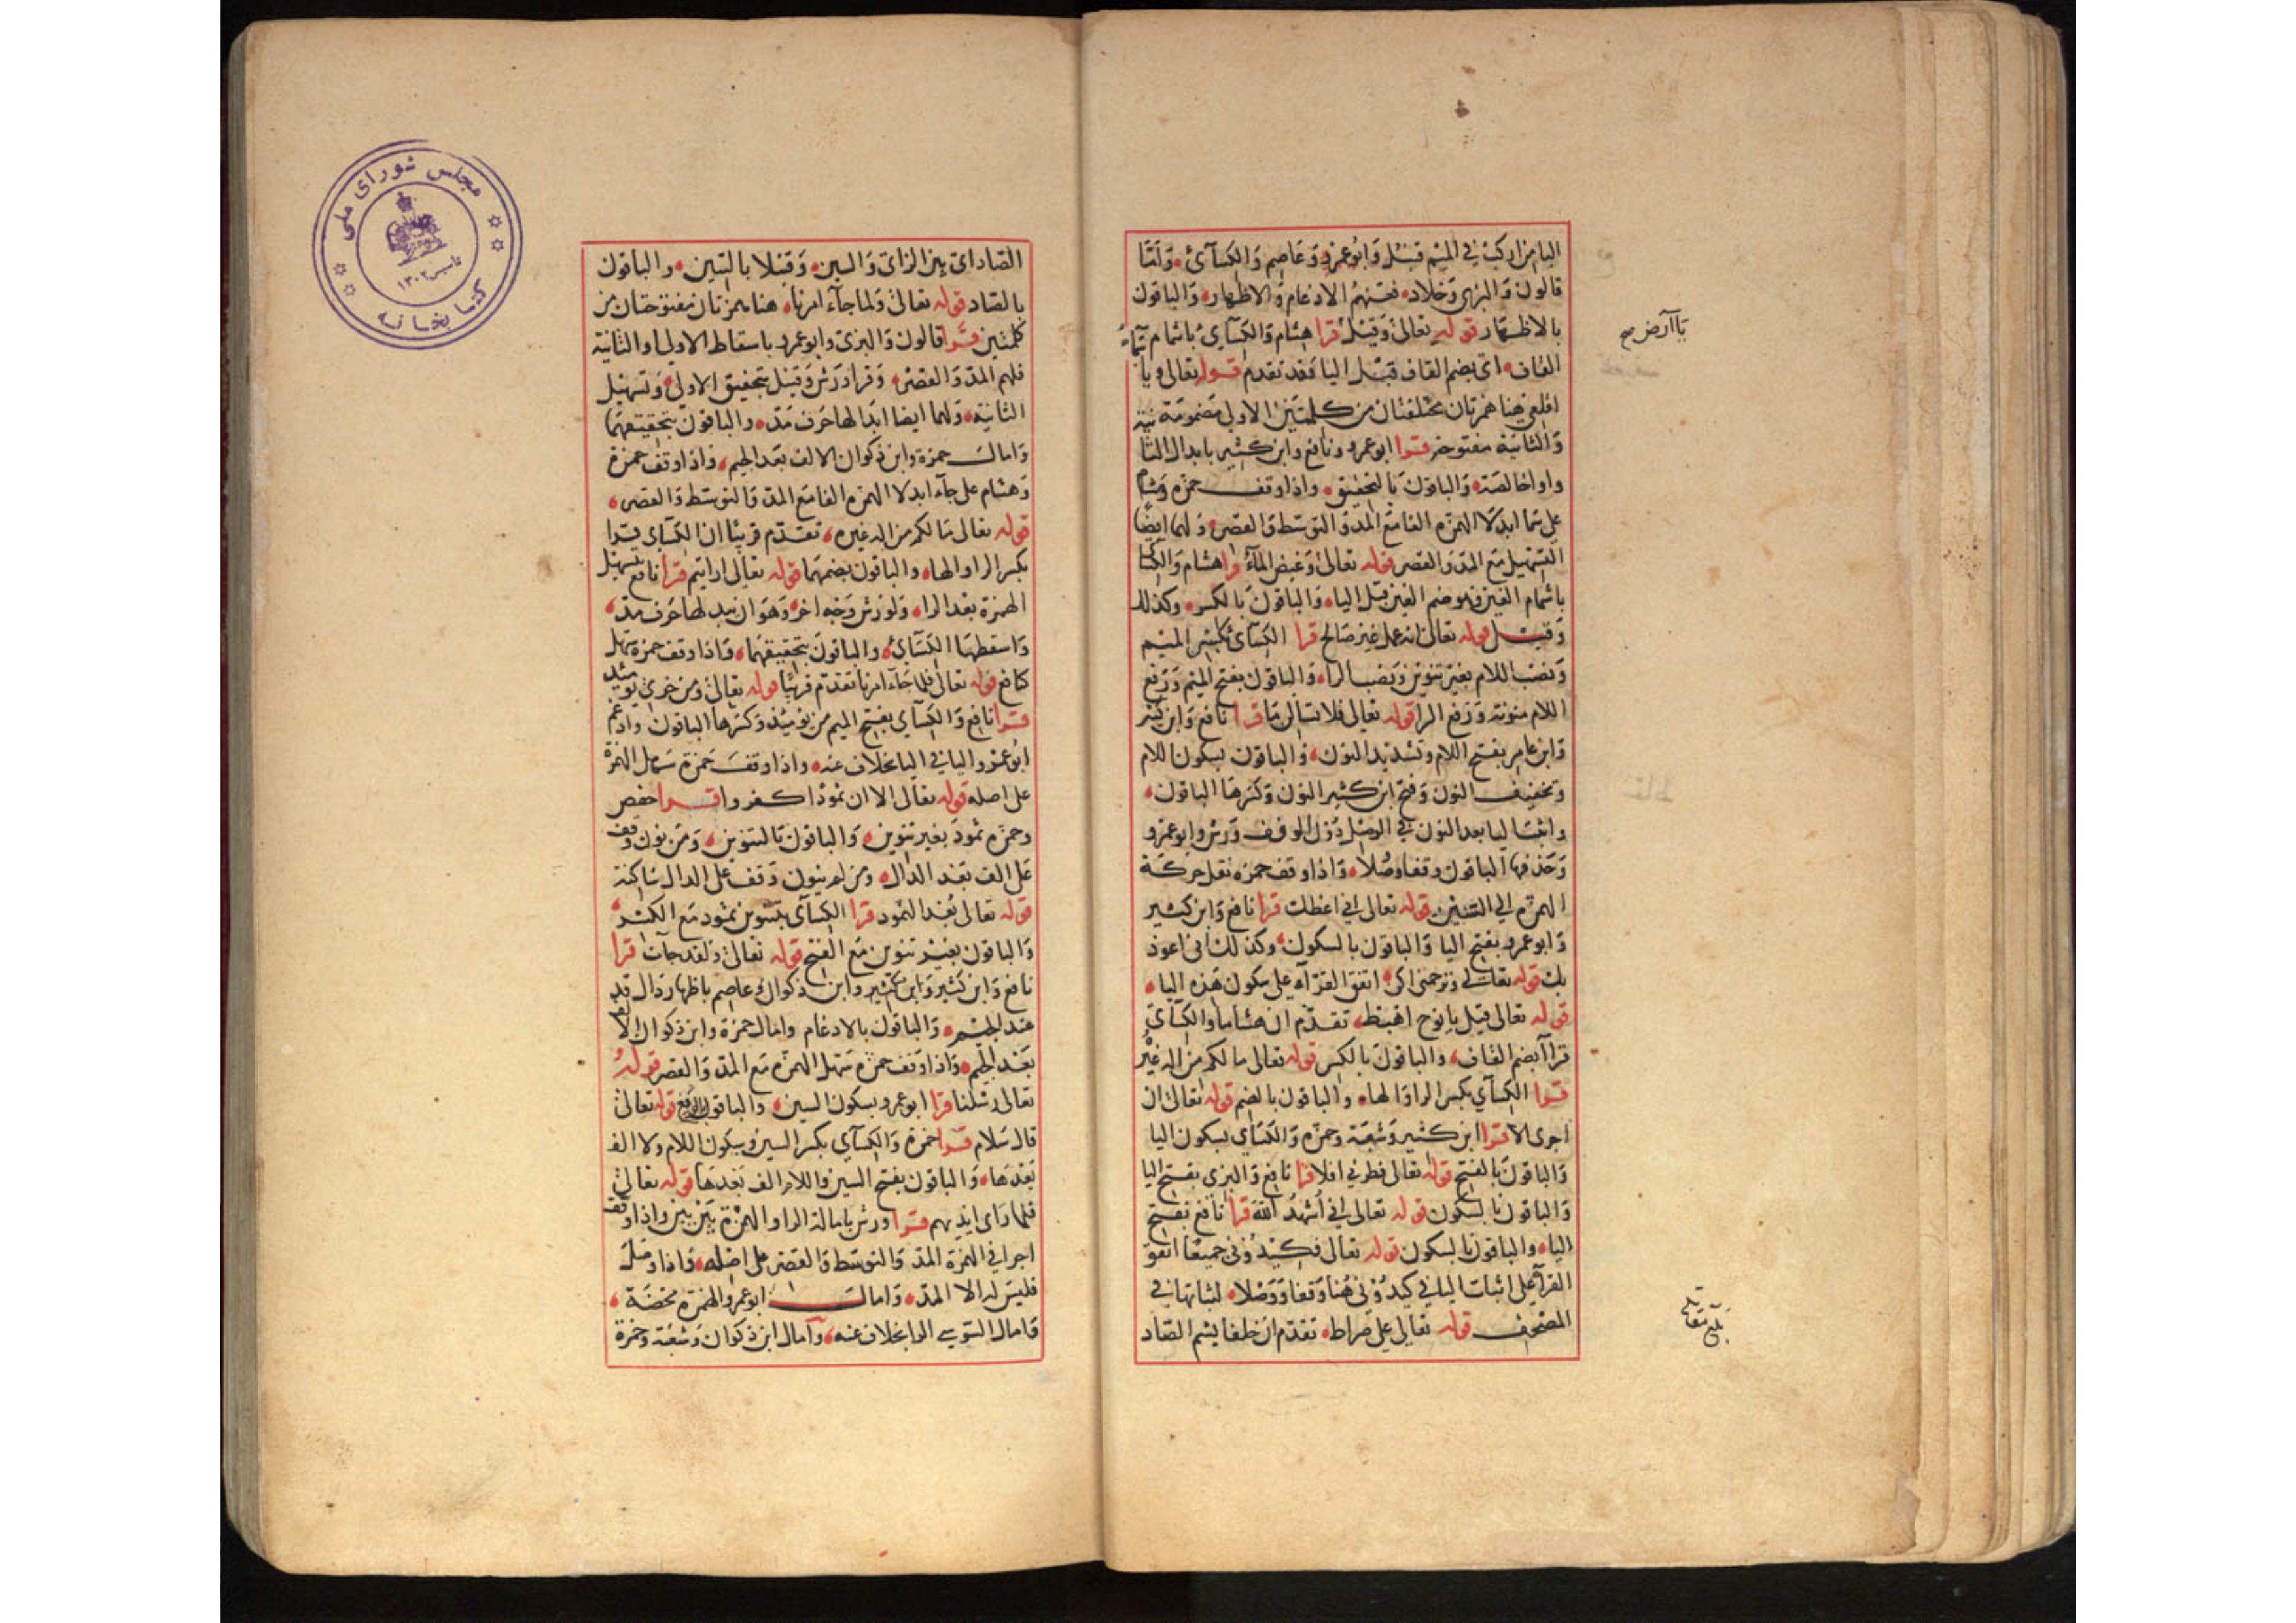 البا من اركب في الميم قنبل وابو عمرو وعاصم والكسآئي، وامّا
قالون والبزي وخلاد، فعنهم الادغام والاظهار، والباقون
بالاظهار قوله تعالى وقيل قرا هشام والكسآئي باشمام
القاف، اي بضم القاف قبل اليا فقد تقدم قوله تعالى ويا
اقلعي هنا همزتان مختلفتان من كلمتين الاولى مضمومة
والثانية مفتوحة قرا ابو عمرو ونافع وابن كثير بابدال الثا
واوا خالصة، والباقون بالتحقيق، واذا وقف حمزه وهشام
على سما ابدلا الهمزه الفا مع المد والتوسط والقصر، ولهما ايضا
التسهيل مع المد والقصر قوله تعالى وغيض المآء قرا هشام والكسا
باشمام الغين وهو ضم الغين قبل اليا، والباقون بالكسر، وكذلك
وقيل قوله تعالى انه عمل غير صالح قرا الكسآئي بكسر الميم
ونصب اللام بغير تنوين ونصب الرا، والباقون بفتح الميم ورفع
اللام منونه ورفع الرا قوله تعالى فلا تسالن ما قرا نافع وابن كثير
وابن عامر بفتح اللام وتشديد النون، والباقون بسكون اللام
وتخفيف النون وفتح ابن كثير النون وكسرها الباقون،
واثبت اليا بعد النون في الوصل دون الوقف ورش وابو عمرو
وحذفها الباقون وقفا وصلا، واذا وقف حمزه نقل حركة
الهمزه الى السين، قوله تعالى اني اعظك قرا نافع وابن كثير
وابو عمرو بفتح اليا والباقون بالسكون، وكذلك اني اعوذ
بك قوله تعالى وترحمني اكن، اتفق القرآء على سكون هذه الياء،
قوله تعالى قيل يا نوح اهبط، تقدّم ان هشاما والكسآي
قرآ بضم القاف، والباقون بالكسر قوله تعالى ما لكم من اله غيره
قرا الكسآي بكسر الرا والها، والباقون بالضم قوله تعالى ان
اجرى الا قرا ابن كثير وشعبة وحمزه والكسآي بسكون اليا
والباقون بالفتح قوله تعالى فطرني افلا قرا نافع والبزي بفتح اليا
والباقون بالسكون قوله تعالى اني اُشهدُ الله قرا نافع بفتح
الياء، والباقون بالسكون قوله تعالى فكيدُوني جميعًا اتفق
القرآ على اثبات اليا في كيدُوني هُنا وقفا ووصلا، لثباتها في
المصحف قوله تعالى على صراط، تقدّم ان خلفا يشم الصاد
يا آرض صح
بلغ مقابلة
الصاد اي بين الزاي والسين، وقنبلا بالسين، والباقون
بالصاد قوله تعالى ولما جآء امرنا، هنا همزتان مفتوحتان من
كلمتين قرا قالون والبزي وابو عمرو باسقاط الاولى والثانية
فلهم المد والقصر، وقرا ورش وقنبل بتحقيق الاولى وتسهيل
الثانية، ولهما ايضا ابدالها حرف مد، والباقون بتحقيقهما
وامال حمزة وابن ذكوان الالف بعد الجيم، واذا وقف حمزة
وهشام على جآء ابدلا الهمزه الفا مع المد والتوسط والقصر،
قوله تعالى ما لكم من اله غيره، تقدّم قريبًا ان الكسآي يقرا
بكسر الرا والها، والباقون بضمهما قوله تعالى ارايتم قرا نافع بتسهيل
الهمزة بعد الرا، ولورش وجه اخر، وهو ان يبدلها حرف مد،
واسقطها الكسآئي، والباقون بتحقيقها، واذا وقف حمزة سهل
كنافع قوله تعالى فلما جآء امرنا تقدّم قريبًا قوله تعالى ومن خزي يومئذ
قرا نافع والكسآي بفتح الميم من يومئذ وكسرها الباقون وادغم
ابُو عمرو اليا في اليا بخلاف عنه، واذا وقف حمزة سهل الهمزة
على اصله قوله تعالى الا ان ثمودًا كفروا قرا حفص
وحمزه ثمودَ بغير تنوين، والباقون بالتنوين، ومن نون وقف
على الف بعد الدال، ومن لم ينون وقف على الدال ساكنة
قوله تعالى بُعدا لثمود قرا الكسآي بتنوين ثمود مع الكسر
والباقون بغير تنوين مع الفتح قوله تعالى ولقد جآت قرا
نافع وابن كثير وابن كثير وابن ذكوان وعاصم باظهار دال قد
عند الجيم، والباقون بالادغام وامال حمزة وابن ذكوان الالف
بعد الجيم، واذا وقف حمزه سهل الهمزه مع المد والقصر قوله
تعالى رسلنا قرا ابو عمرو بسكون السين، والباقون بالرفع قوله تعالى
قال سلام قرا حمزة والكسآي بكسر السين وسكون اللام ولا الف
بعدها، والباقون بفتح السين واللام الف بعدها قوله تعالى
فلما راى ايديهم قرا ورش بامالة الرا والهمزة بين بين واذا وقف
اجرا في الهمزة المد والتوسط والقصر على اصله، واذا وصل
فليس له الا المد، وامال ابو عمرو الهمزه محضة،
وامال السوسي الرا بخلاف عنه، وآمال ابن ذكوان وشعبة وحمزة
مجلس شورای ملی
تاسیس ۱۳۰۲
کتابخانه